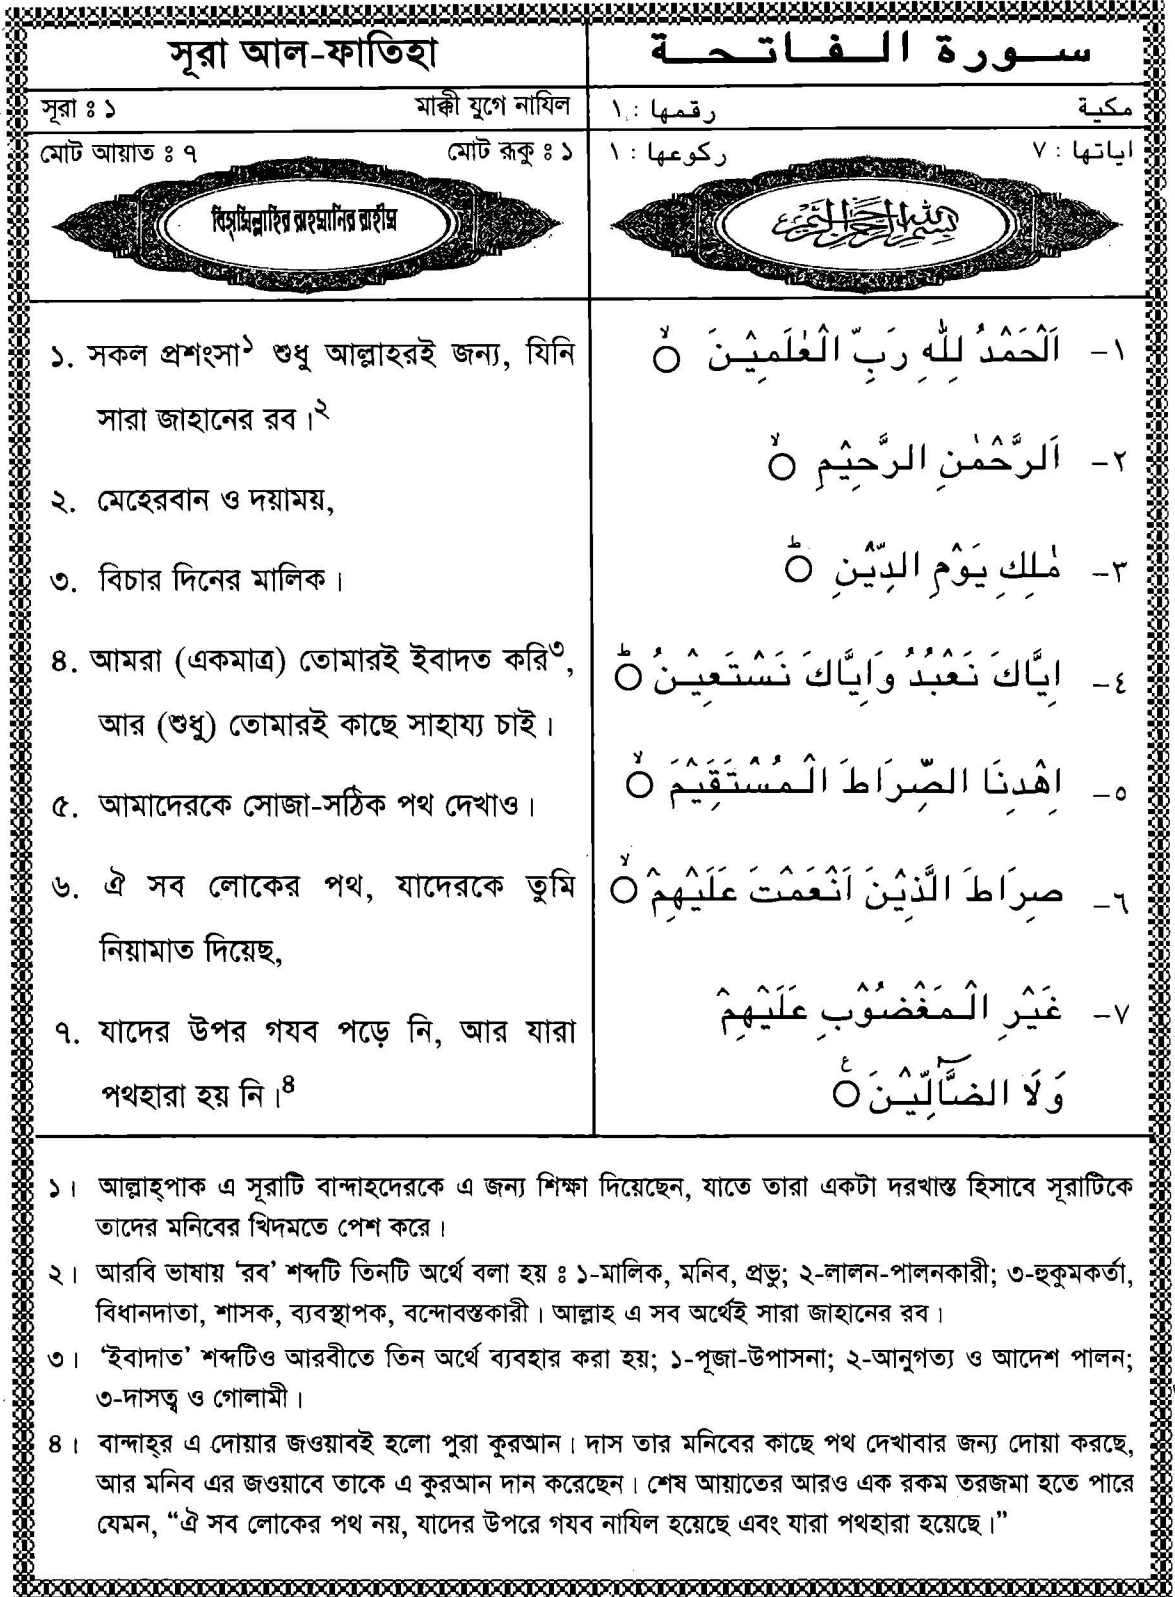 সূরা আল-ফাতিহা
سورة الفاتحة
সূরা ঃ ১ মাক্কী যুগে নাযিল
مكية رقمها : ١
মোট আয়াত ঃ ৭ মোট রূকু ঃ ১
اياتها : ٧ ركوعها : ١
বিস্‌মিল্লাহির রাহমানির রাহীম
بسم الله الرحمن الرحيم
১. সকল প্রশংসা১ শুধু আল্লাহরই জন্য, যিনি
সারা জাহানের রব।২
২. মেহেরবান ও দয়াময়,
৩. বিচার দিনের মালিক।
৪. আমরা (একমাত্র) তোমারই ইবাদত করি৩,
আর (শুধু) তোমারই কাছে সাহায্য চাই।
৫. আমাদেরকে সোজা-সঠিক পথ দেখাও।
৬. ঐ সব লোকের পথ, যাদেরকে তুমি
নিয়ামাত দিয়েছ,
৭. যাদের উপর গযব পড়ে নি, আর যারা
পথহারা হয় নি।৪
١- اَلْحَمْدُ لِلّٰهِ رَبِّ الْعٰلَمِيْنَ ۙ
٢- اَلرَّحْمٰنِ الرَّحِيْمِ ۙ
٣- مٰلِكِ يَوْمِ الدِّيْنِ ؕ
٤- اِيَّاكَ نَعْبُدُ وَاِيَّاكَ نَسْتَعِيْنُ ؕ
٥- اِهْدِنَا الصِّرَاطَ الْمُسْتَقِيْمَ ۙ
٦- صِرَاطَ الَّذِيْنَ اَنْعَمْتَ عَلَيْهِمْ ۙ
٧- غَيْرِ الْمَغْضُوْبِ عَلَيْهِمْ
وَلَا الضَّآلِّيْنَ ع
১। আল্লাহ্‌পাক এ সূরাটি বান্দাহদেরকে এ জন্য শিক্ষা দিয়েছেন, যাতে তারা একটা দরখাস্ত হিসাবে সূরাটিকে
তাদের মনিবের খিদমতে পেশ করে।
২। আরবি ভাষায় ‘রব’ শব্দটি তিনটি অর্থে বলা হয় ঃ ১-মালিক, মনিব, প্রভু; ২-লালন-পালনকারী; ৩-হুকুমকর্তা,
বিধানদাতা, শাসক, ব্যবস্থাপক, বন্দোবস্তকারী। আল্লাহ এ সব অর্থেই সারা জাহানের রব।
৩। ‘ইবাদাত’ শব্দটিও আরবীতে তিন অর্থে ব্যবহার করা হয়; ১-পূজা-উপাসনা; ২-আনুগত্য ও আদেশ পালন;
৩-দাসত্ব ও গোলামী।
৪। বান্দাহ্‌র এ দোয়ার জওয়াবই হলো পুরা কুরআন। দাস তার মনিবের কাছে পথ দেখাবার জন্য দোয়া করছে,
আর মনিব এর জওয়াবে তাকে এ কুরআন দান করেছেন। শেষ আয়াতের আরও এক রকম তরজমা হতে পারে
যেমন, “ঐ সব লোকের পথ নয়, যাদের উপরে গযব নাযিল হয়েছে এবং যারা পথহারা হয়েছে।”